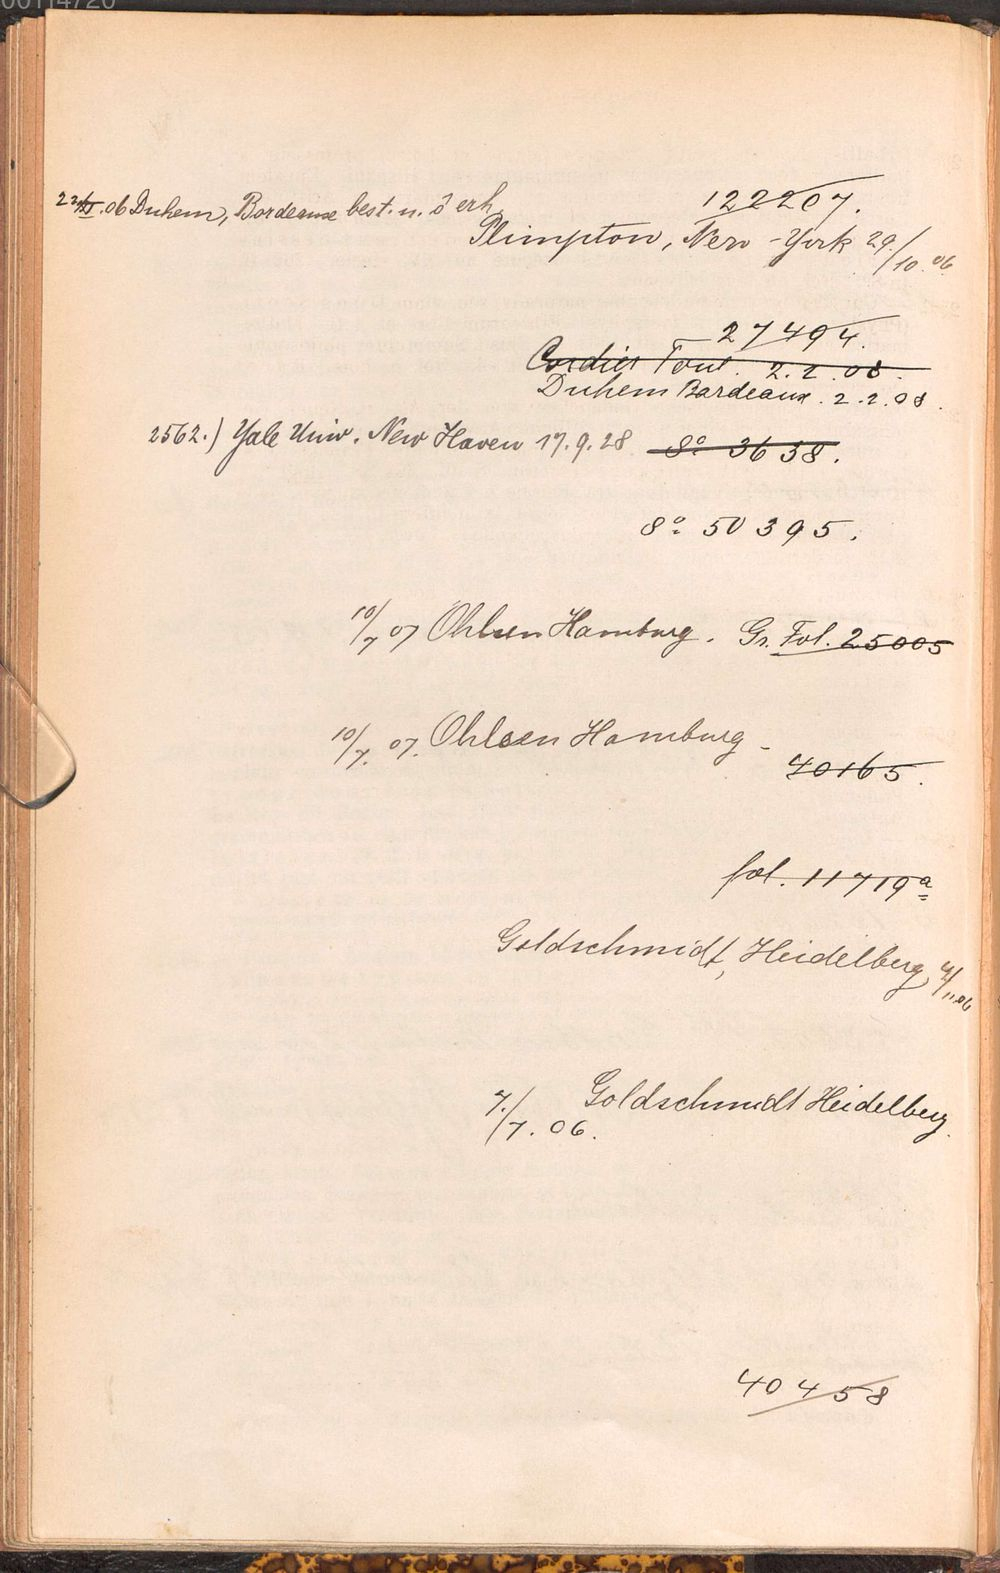 00114720
06 Duhem, Bordeaux best. n. erh.
122207.
Plimpton, New-York 29/10.06
27494.
Cordier Toul. 2.2.08.
Duhem Bordeaux. 2.2.08.
2562.) Yale Univ. New Haven 17.9.28 8° 3638.
8° 50395.
10/7 07 Ohlsen Hamburg. Gr. Fol. 25005
10/7. 07. Ohlsen Hamburg -
40165.
fol. 11719a
Goldschmidt, Heidelberg, 4/11.06
7./7. 06. Goldschmidt Heidelberg.
40458